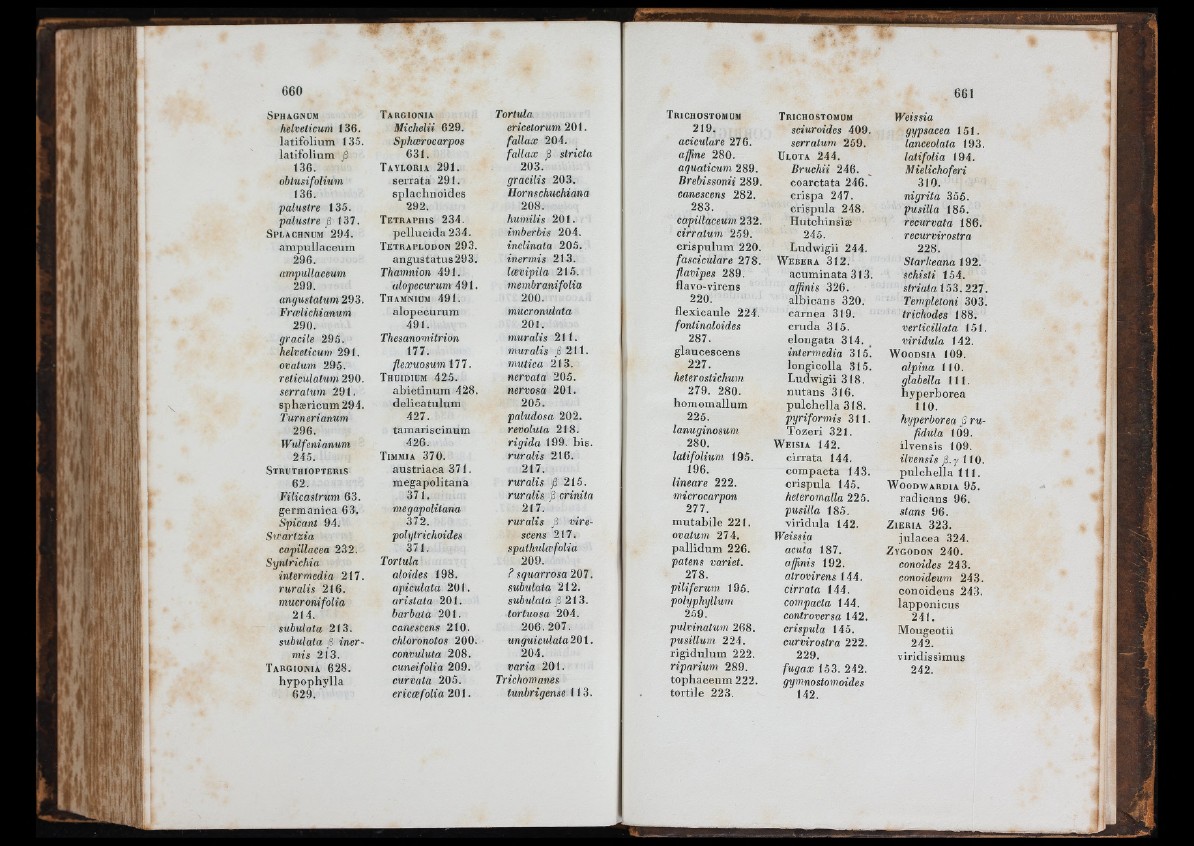 660
SPHAGNUM
helveticum 136.
latifolium 135.
latifolium β
136.
obtusifolium
136.
palustre 135.
palustre β 137.
SPLACHNUM 294.
ampullaceum
296.
ampullaceum
299.
angustatum 293.
Frœlichianum
290.
gracile 295.
helveticum 291.
ovatum 295.
reticulatum 290.
serratum 291.
sphæricum 294.
Turnerianum
296.
Wulfenianum
245.
STRUTHIOPTERIS
62.
Filicastrum 63.
germanica 63.
Spicant 94.
Swartzia
capillacea 232.
Syntrichia
intermedia 217.
ruralis 216.
mucronifolia
214.
subulata 213.
subulata β iner-
mis 213.
TARGIONIA 628.
hypophylla
629.
TARGIONIA
Michelii 629.
Sphærocarpos
631.
TAYLORIA 291.
serrata 291.
splachnoides
292.
TETRAPHIS 234.
pellucida 234.
TETRAPLODON 293.
angustatus 293.
Thamnion 491.
alopecurum 491.
THAMNIUM 491.
alopecurum
491.
Thesanomitrion
177.
flexuosum 177.
THUIDIUM 425.
abietinum 428.
delicatulum
427.
tamariscinum
426.
TIMMIA 370.
austriaca 371.
megapolitana
371.
megapolitana
372.
polytrichoides
371.
Tortula
aloides 198.
apiculata 201.
aristata 201.
barbata 201.
canescens 210.
chloronotos 200.
convoluta 208.
cuneifolia 209.
curvata 205.
ericæfolia 201.
Tortula
ericetorum 201.
fallax 204.
fallax β stricta
203.
gracilis 203.
Hornschuchiana
208.
humilis 201.
imberbis 204.
inclinata 205.
inermis 213.
lævipila 215.
membranifolia
200.
mucronulata
201.
muralis 211.
muralis β 211.
mutica 213.
nervata 205.
nervosa 201.
205.
paludosa 202.
revoluta 218.
rigida 199. bis.
ruralis 216.
217.
ruralis β 215.
ruralis β crinita
217.
ruralis β vire-
scens 217.
spathulæfolia
209.
? squarrosa 207.
subulata 212.
subulata β 213.
tortuosa 204.
206. 207.
unguiculata 201.
204.
varia 201.
Trichomanes
tunbrigense 113.
661
TRICHOSTOMUM
219.
aciculare 276.
affine 280.
aquaticum 289.
Brebissonii 289.
canescens 282.
283.
capillaceum 232.
cirratum 259.
crispulum 220.
fasciculare 278.
flavipes 289.
flavo-virens
220.
flexicaule 224.
fontinaloides
287.
glaucescens
227.
heterostichum
279. 280.
homomallum
225.
lanuginosum
280.
latifolium 195.
196.
lineare 222.
microcarpon
277.
mutabile 221.
ovatum 274.
pallidum 226.
patens variet.
278.
piliferum 195.
polyphyllum
259.
pulvinatum 268.
pusillum 224.
rigidulum 222.
riparium 289.
tophaceum 222.
tortile 223.
TRICHOSTOMUM
sciuroides 409.
serratum 259.
ULOTA 244.
Bruchii 246.
coarctata 246.
crispa 247.
crispula 248.
Hutchinsiæ
245.
Ludwigii 244.
WEBERA 312.
acuminata 313.
affinis 326.
albicans 320.
carnea 319.
cruda 315.
elongata 314.
intermedia 315.
longicolla 315.
Ludwigii 318.
nutans 316.
pulchella 318.
pyriformis 311.
Tozeri 321.
WEISIA 142.
cirrata 144.
compacta 143.
crispula 145.
heteromalla 225.
pusilla 185.
viridula 142.
Weissia
acuta 187.
affinis 192.
atrovirens 144.
cirrata 144.
compacta 144.
controversa 142.
crispula 145.
curvirostra 222.
229.
fugax 153. 242.
gymnostomoides
142.
Weissia
gypsacea 151.
lanceolata 193.
latifolia 194.
Mielichoferi
310.
nigrita 355.
pusilla 185.
recurvata 186.
recurvirostra
228.
Starkeana 192.
schisti 154.
striata 153. 227.
Templetoni 303.
trichodes 188.
verticillata 151.
viridula 142.
WOODSIA 109.
alpina 110.
glabella 111.
hyperborea
110.
hyperborea β ru-
fidula 109.
ilvensis 109.
ilvensis β.γ 110.
pulchella 111.
WOODWARDIA 95.
radicans 96.
stans 96.
ZIERIA 323.
julacea 324.
ZYGODON 240.
conoides 243.
conoideum 243.
conoideus 243.
lapponicus
241.
Mougeotii
242.
viridissimus
242.